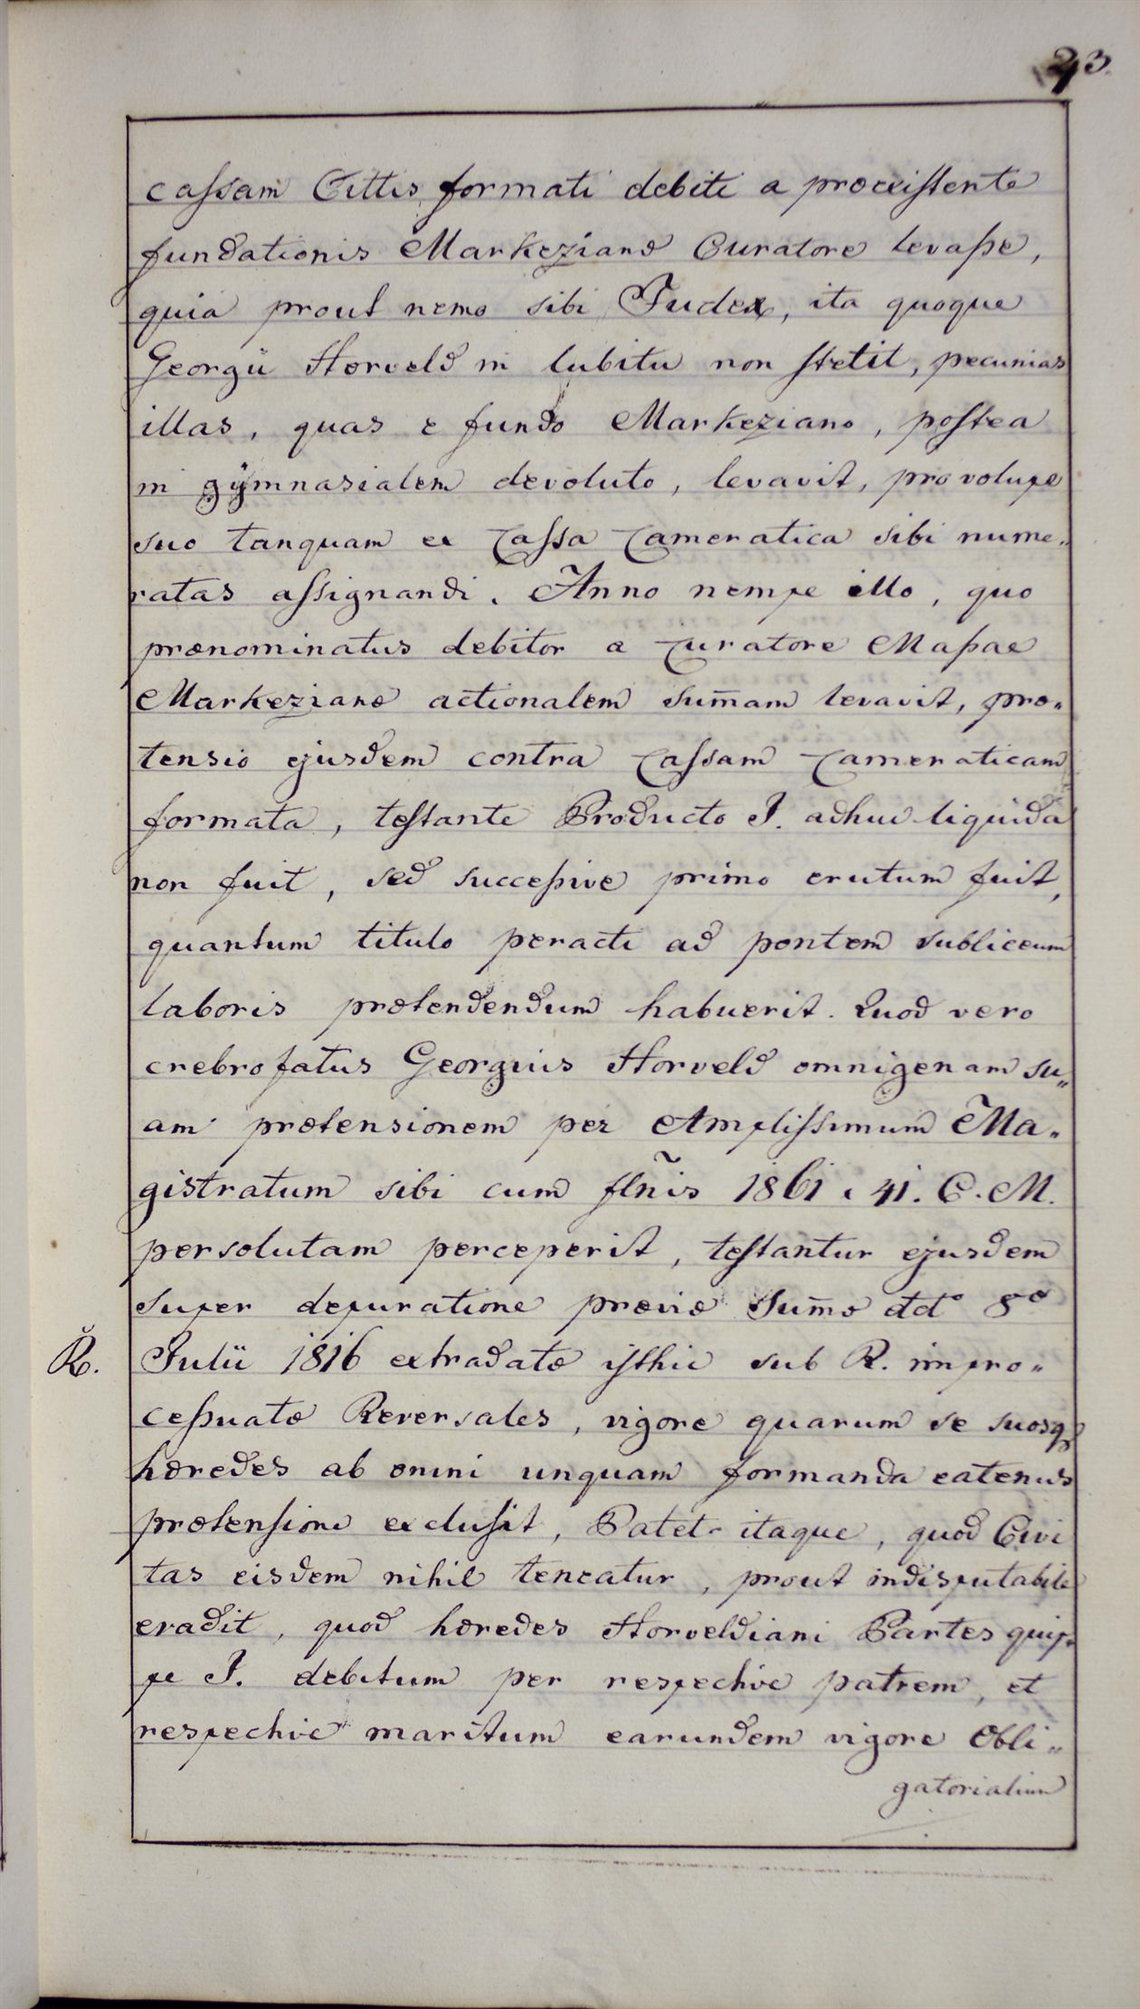 23.
cassam Cittis formati debiti a proexistente
fundationis Markezianæ Curatore levasse,
quia prout nemo sibi Judex, ita quoque
Georgii Horveld in lubitu non stetit, pecunias
illas, quas e fundo Markeziano, postea
in gÿmnasialem devoluto, levavit, pro volupe
suo tanquam ex Cassa Cameratica sibi nume„
ratas assignandi. Anno nempe illo, quo
prænominatus debitor a Curatore Massae
Markezianæ actionalem sum̄am levavit, præ„
tensio ejusdem contra Cassam Cameraticam
formata, testante Producto J. adhuc liquida
non fuit, sed successive primo erutum fuit,
quantum titulo peracti ad pontem subliceum
laboris prætendendum habuerit. Quod vero
crebrofatus Georgius Horveld omnigenam su„
am prætensionem per Amplissimum Ma„
gistratum sibi cum flñis 1861 x 41. C. M.
persolutam perceperit, testantur ejusdem
super depuratione præviæ Sum̄æ ddto 8va
R. Julii 1816 extradatæ isthic sub R. impro„
cessuatæ Reversales, vigore quarum se suosq
hæredes ab omni unquam formanda eatenus
prætensione exclusit, Patet itaque, quod Civi
tas eisdem nihil teneatur, prout indisputabile
evadit, quod hæredes Horveldiani Partes quip„
pe J. debitum per respective patrem, et
respective maritum earundem vigore Obli„
gatorialium